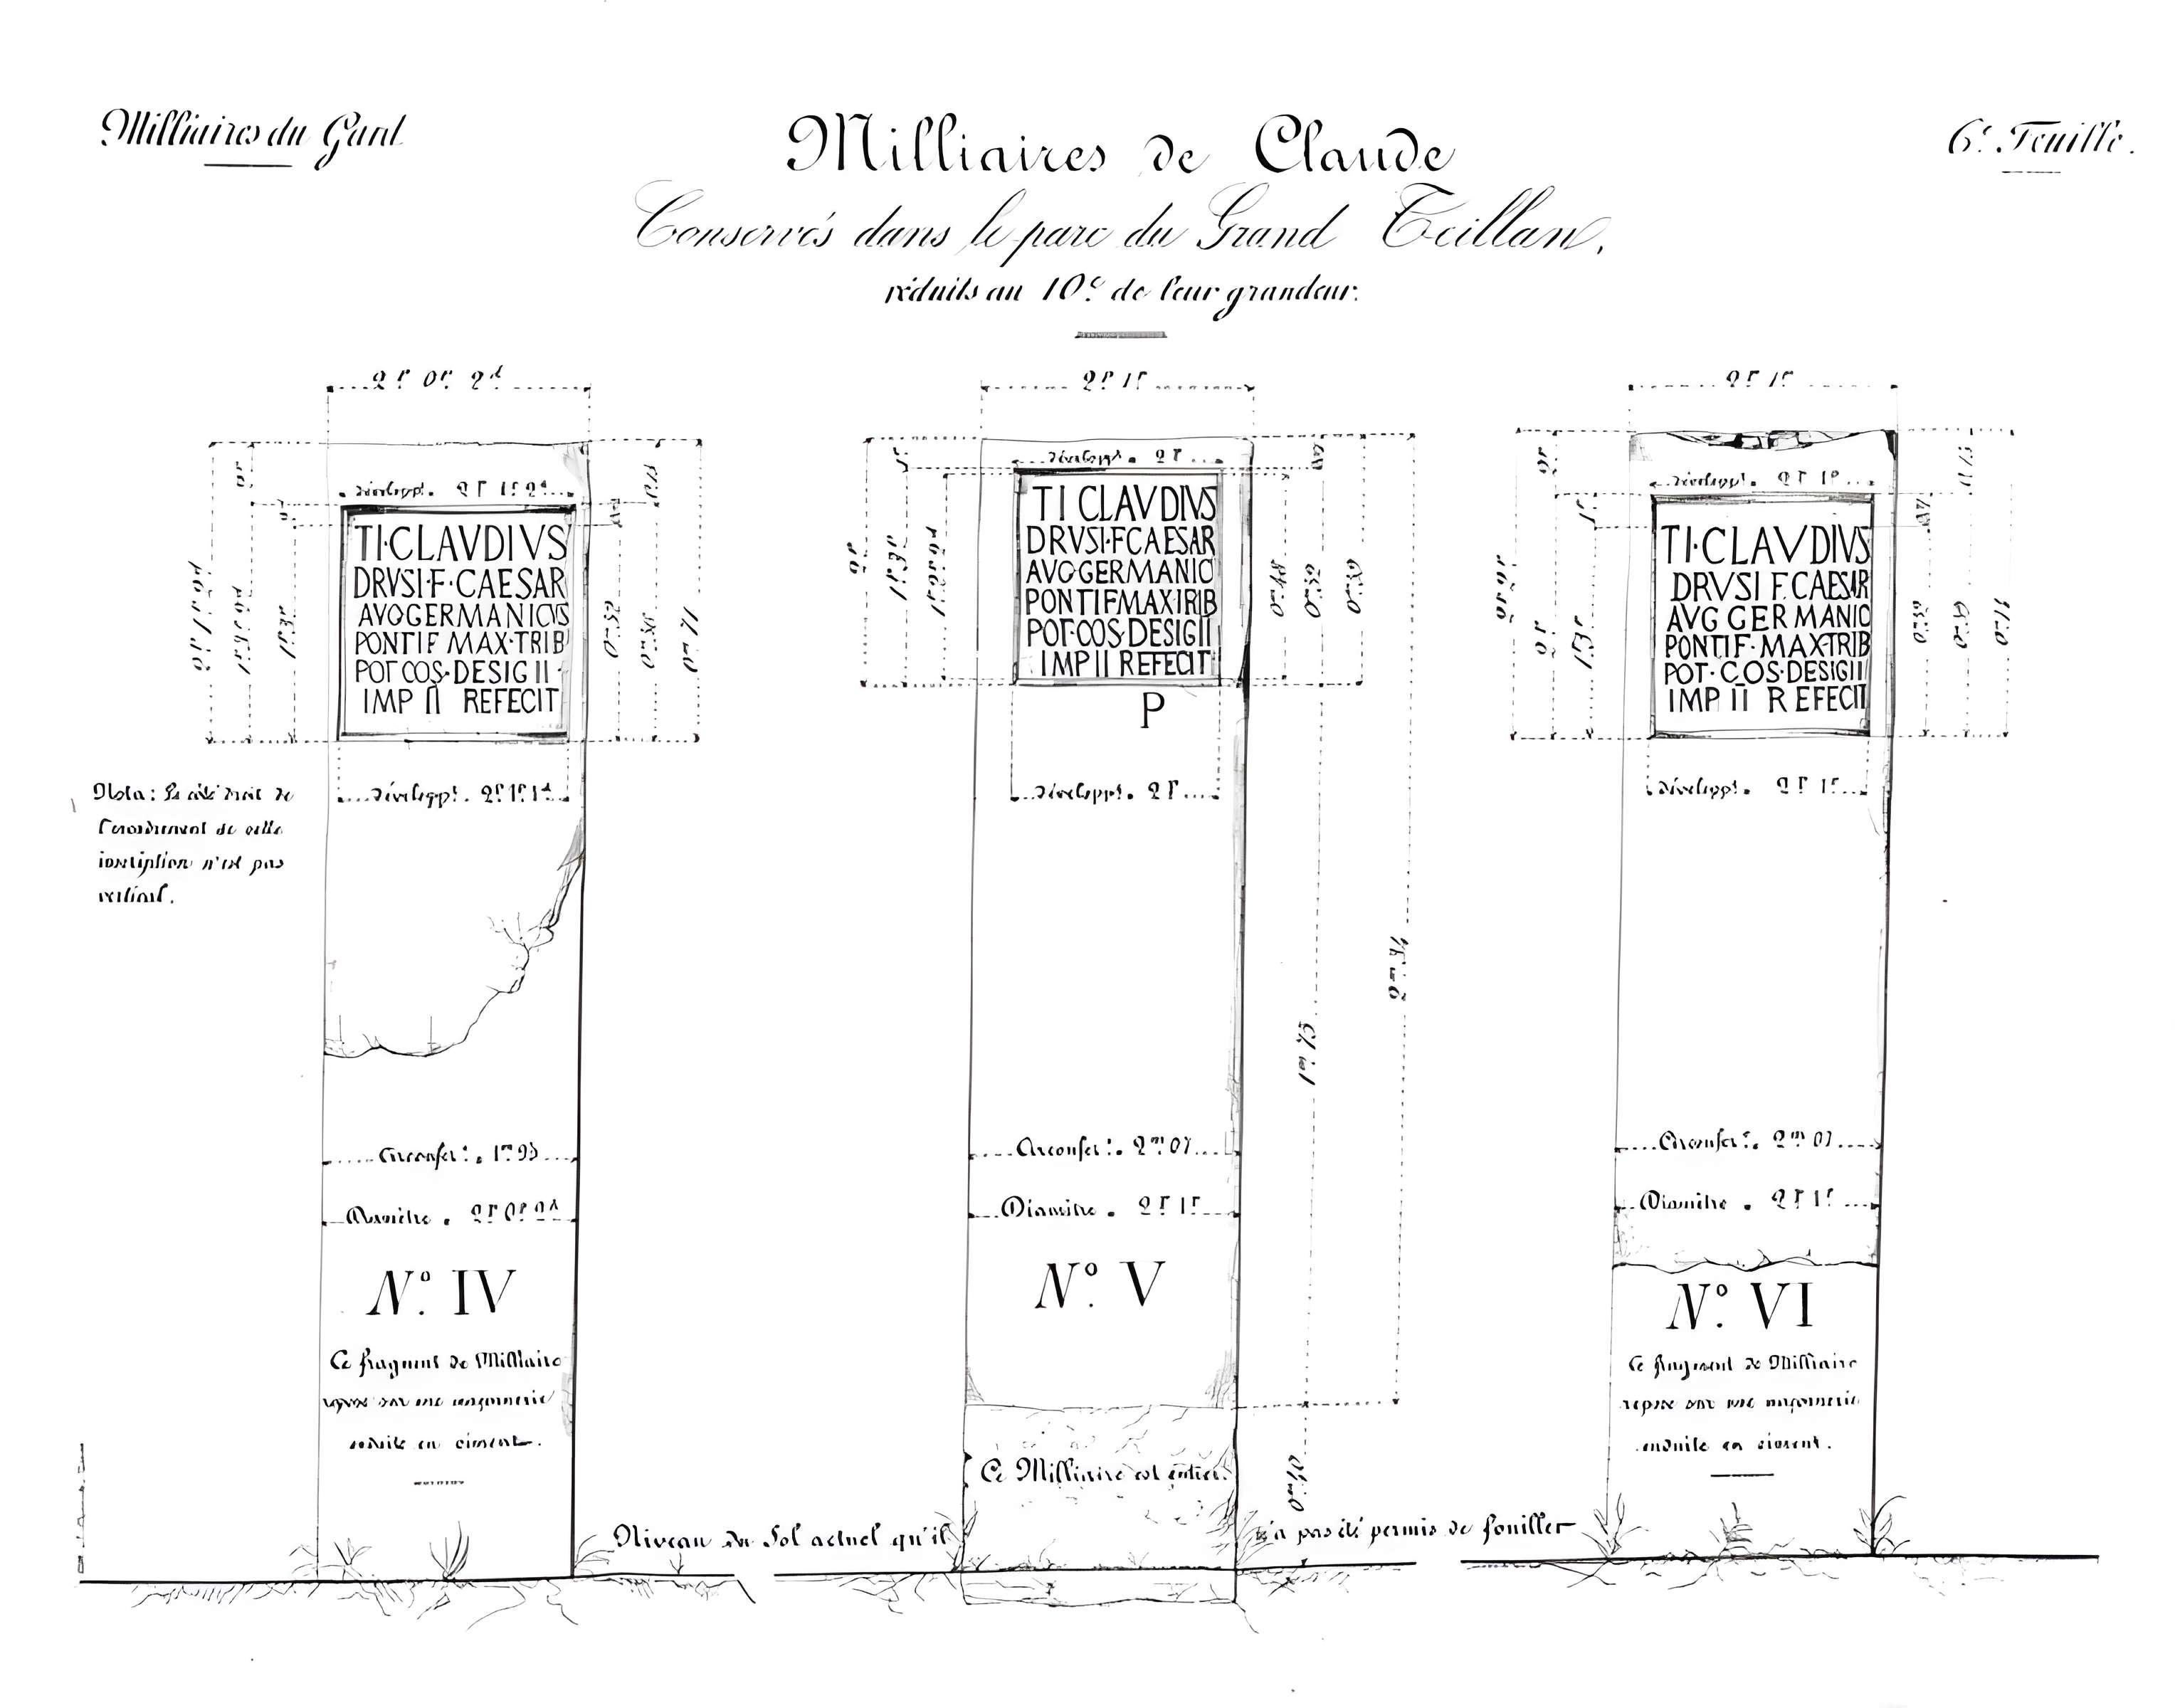 Milliaires du Gard
6e. Feuille.
Milliaires de Claude
Conservés dans le parc du Grand Teillan,
réduits au 10e de leur grandeur.
2P. 0P. 2d
développt. 2P 1P. 2d
TI·CLAVDIVS
DRVSI·F·CAESAR
AVGGERMANICVS
PONTIF MAX·TRIB
POT COS·DESIG II
IMP II REFECIT
développt. 2P. 1P. 1d
Nota: Le côté droit de
l'encadrement de cette
inscription n'est pas
vertical.
Circonfer. 1m 95
Diamètre. 2P. 0P. 2d
No. IV
Ce fragment de Milliaire
repose sur une maçonnerie
enduite en ciment.
2P. 1P
développt. 2P
TI CLAVDIVS
DRVSI·FCAESAR
AVGGERMANIC
PONTIFMAXTRIB
POT·COS·DESIGII
IMP II REFECIT
P
développt. 2P
Circonfer. 2m 07
Diamètre. 2P 1P
No. V
Ce Milliaire est entier.
Niveau du Sol actuel qu'il n'a pas été permis de fouiller
2P. 1P
développt. 2P 1P
TI·CLAVDIVS
DRVSI F. CAESAR
AVG GERMANIC
PONTIF·MAXTRIB
POT·COS·DESIGII
IMP II REFECIT
développt. 2P 1P
Circonfer. 2m 07
Diamètre. 2P 1P
No. VI
Ce fragment de Milliaire
repose sur une maçonnerie
enduite en ciment.